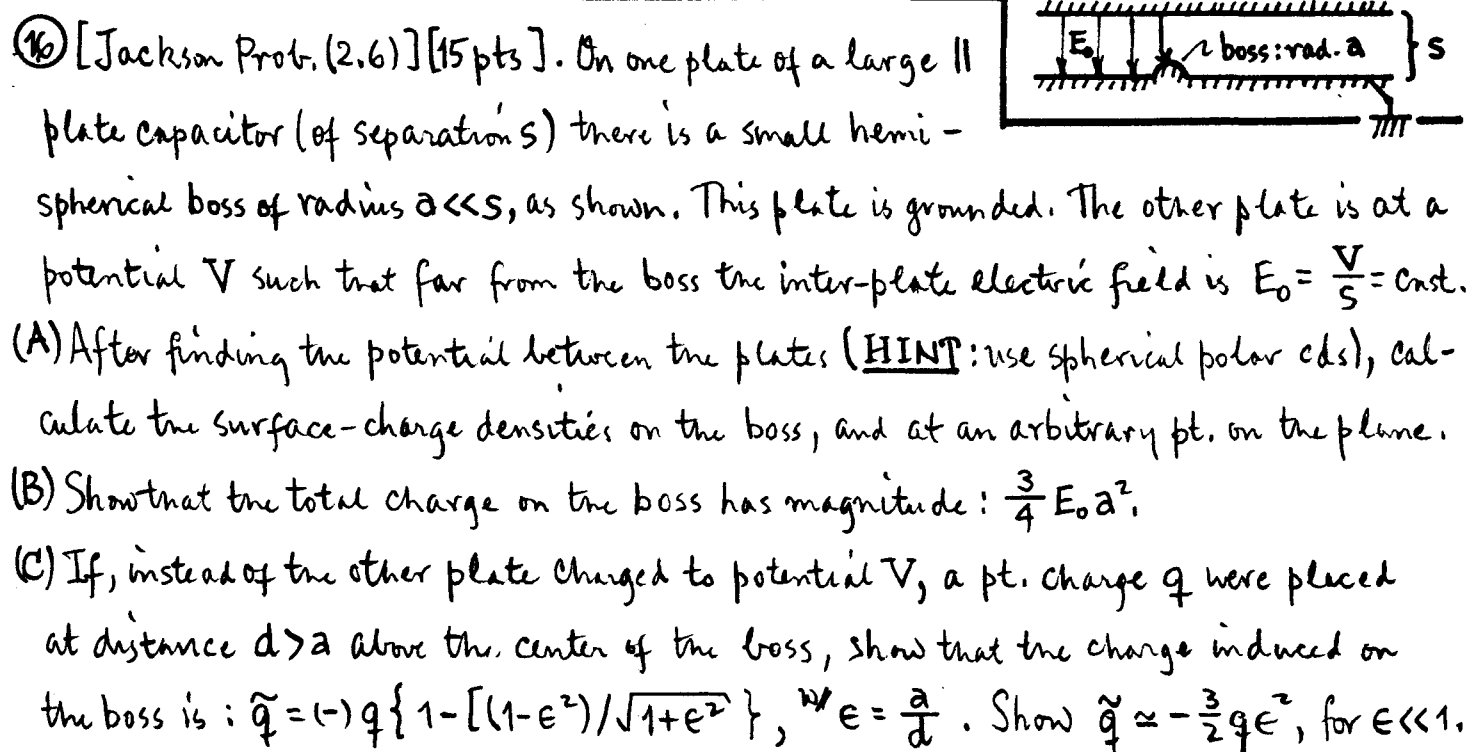 ⑯ [Jackson Prob. (2.6)] [15 pts]. On one plate of a large ||
E₀ boss: rad. a } s
plate capacitor (of separation s) there is a small hemi-
spherical boss of radius a<<s, as shown. This plate is grounded. The other plate is at a
potential V such that far from the boss the inter-plate electric field is E₀ = V/s = cnst.
(A) After finding the potential between the plates (HINT: use spherical polar cds), cal-
culate the surface-charge densities on the boss, and at an arbitrary pt. on the plane.
(B) Show that the total charge on the boss has magnitude: 3/4 E₀a².
(C) If, instead of the other plate charged to potential V, a pt. charge q were placed
at distance d>a above the center of the boss, show that the charge induced on
the boss is: q̃ = (-) q {1-[(1-ϵ²)/√1+ϵ² }, w/ ϵ = a/d. Show q̃ ≃ -3/2 qϵ², for ϵ<<1.